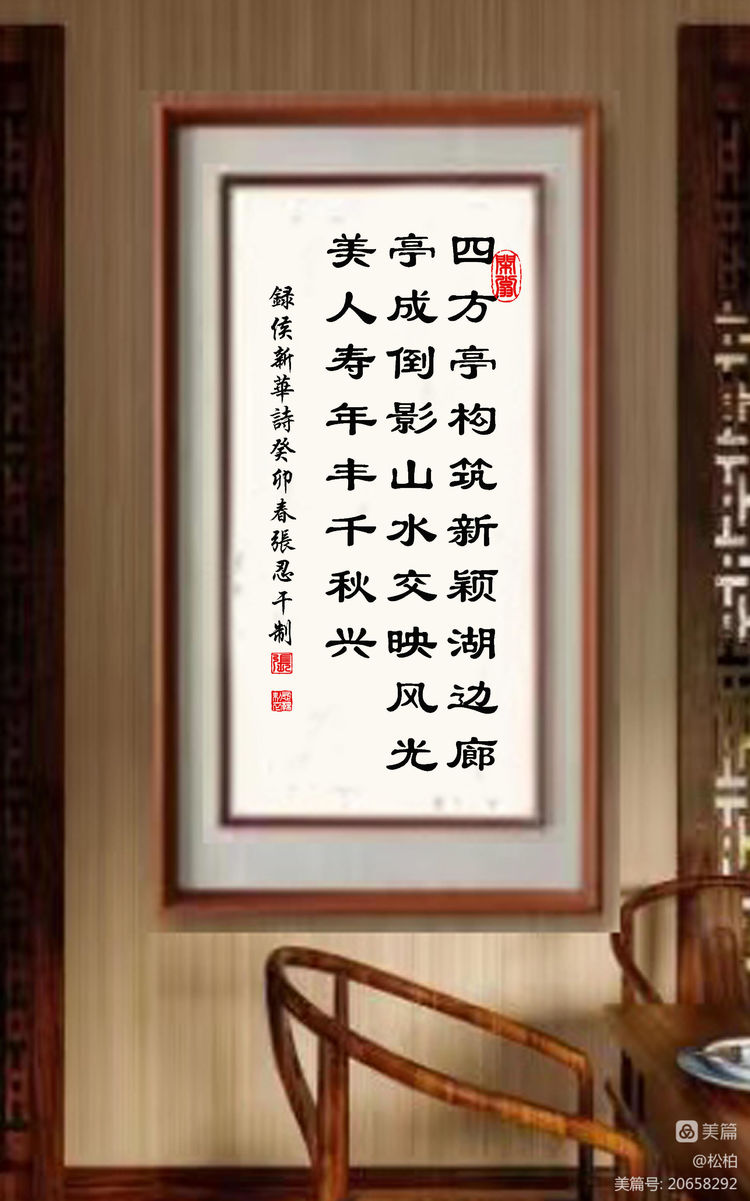 四方亭构筑新颖湖边廊
亭成倒影山水交映风光
美人寿年丰千秋兴
録侯新華詩癸卯春張忍干制
張
美篇
@松柏
美篇号: 20658292